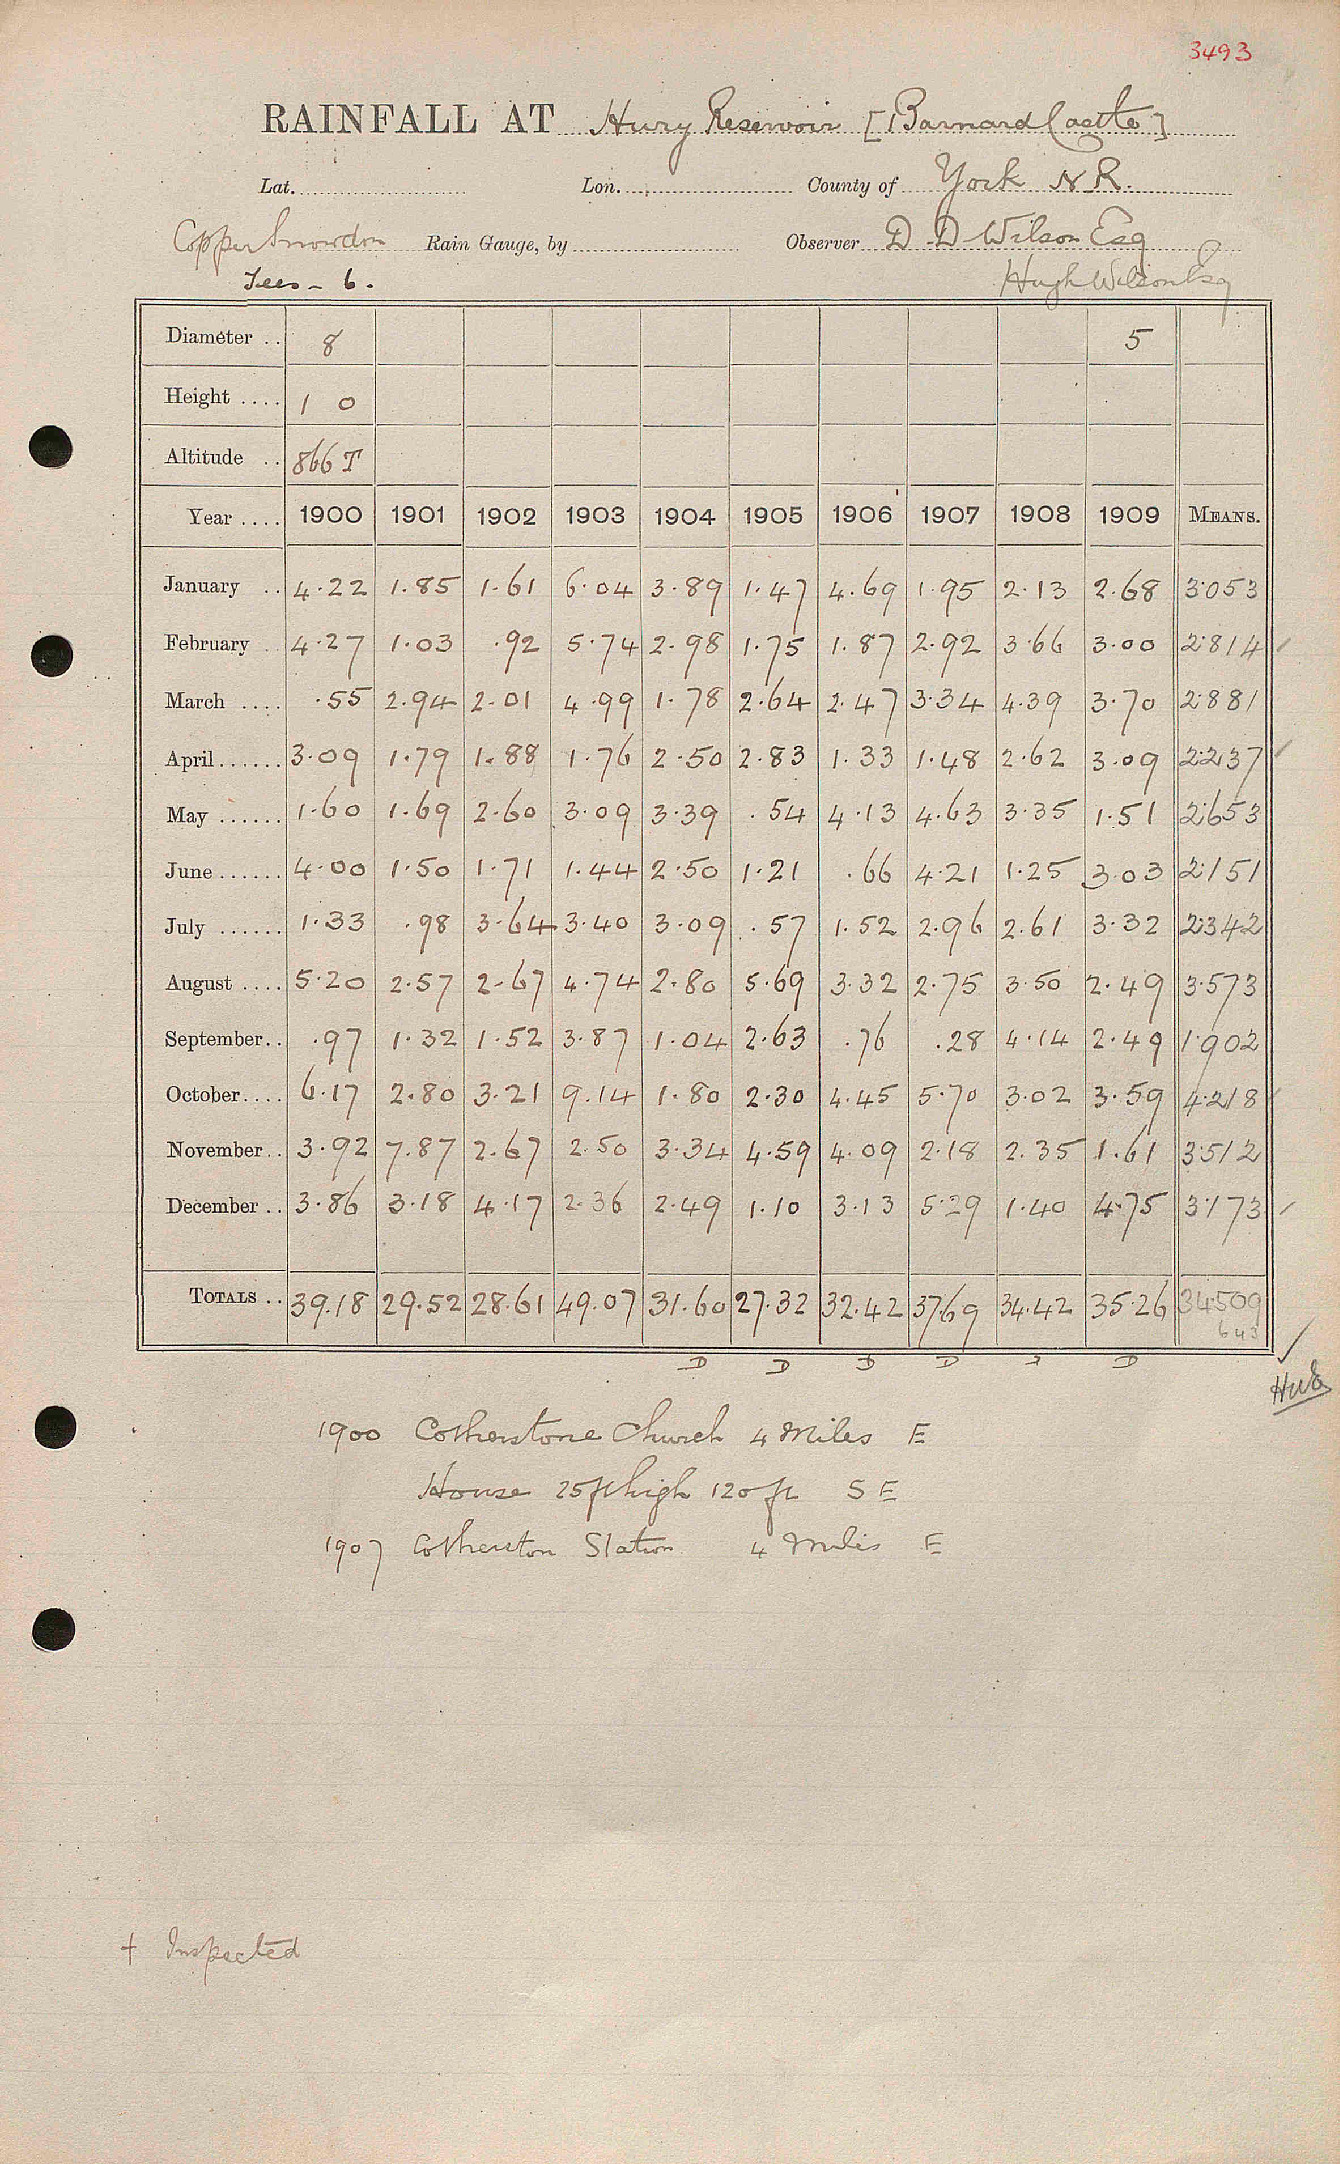 3493
RAINFALL AT Hury Reservoir [Barnard Castle]
Lat. Lon. County of York N R.
Copper Snowdon Rain Gauge, by Observer D D Wilson Esq
Tees - 6. Hugh Wilson Esq
Diameter .. 8 5
Height .... 1 0
Altitude .. 866 T
Year .... 1900 1901 1902 1903 1904 1905 1906 1907 1908 1909 MEANS.
January .. 4.22 1.85 1.61 6.04 3.89 1.47 4.69 1.95 2.13 2.68 3.053
February .. 4.27 1.03 .92 5.74 2.98 1.75 1.87 2.92 3.66 3.00 2.814
March .... .55 2.94 2.01 4.99 1.78 2.64 2.47 3.34 4.39 3.70 2.881
April ...... 3.09 1.79 1.88 1.76 2.50 2.83 1.33 1.48 2.62 3.09 2.237
May ...... 1.60 1.69 2.60 3.09 3.39 .54 4.13 4.63 3.35 1.51 2.653
June ...... 4.00 1.50 1.71 1.44 2.50 1.21 .66 4.21 1.25 3.03 2.151
July ...... 1.33 .98 3.64 3.40 3.09 .57 1.52 2.96 2.61 3.32 2.342
August .... 5.20 2.57 2.67 4.74 2.80 5.69 3.32 2.75 3.50 2.49 3.573
September.. .97 1.32 1.52 3.87 1.04 2.63 .76 .28 4.14 2.49 1.902
October.... 6.17 2.80 3.21 9.14 1.80 2.30 4.45 5.70 3.02 3.59 4.218
November.. 3.92 7.87 2.67 2.50 3.34 4.59 4.09 2.18 2.35 1.61 3.512
December .. 3.86 3.18 4.17 2.36 2.49 1.10 3.13 5.29 1.40 4.75 3.173
TOTALS .. 39.18 29.52 28.61 49.07 31.60 27.32 32.42 37.69 34.42 35.26 34.509
643
D D D D D
1900 Cotherstone Church 4 Miles E
House 25ft high 120 ft S E
1907 Cotherston Station 4 Miles E
† Inspected